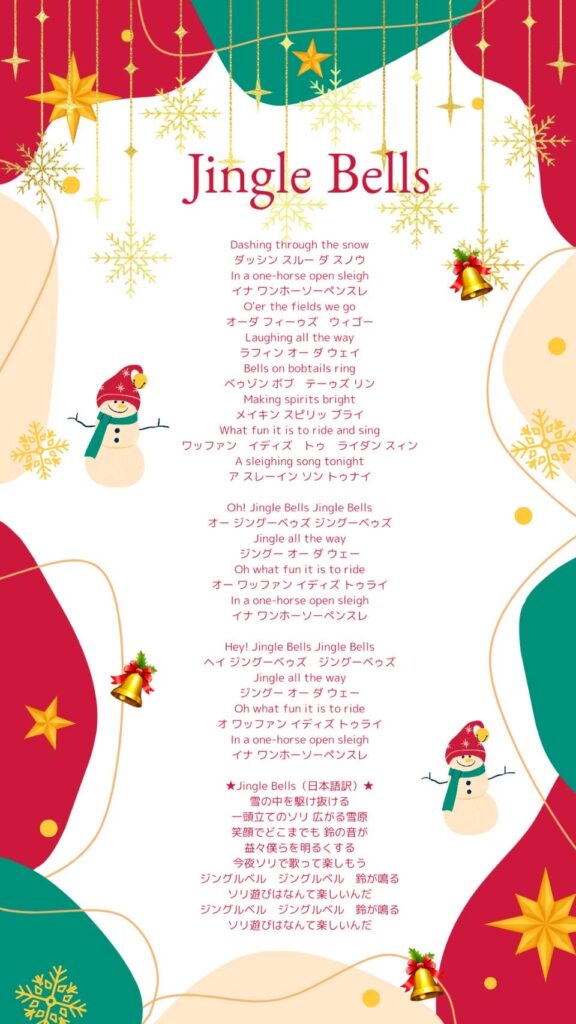 Jingle Bells
Dashing through the snow
ダッシン スルー ダ スノウ
In a one-horse open sleigh
イナ ワンホーソーペンスレ
O'er the fields we go
オーダ フィーゥズ　ウィゴー
Laughing all the way
ラフィン オー ダ ウェイ
Bells on bobtails ring
ベゥゾン ボブ　テーゥズ リン
Making spirits bright
メイキン スピリッ ブライ
What fun it is to ride and sing
ワッファン　イディズ　トゥ　ライダン スィン
A sleighing song tonight
ア スレーイン ソン トゥナイ
Oh! Jingle Bells Jingle Bells
オー ジングーベゥズ ジングーベゥズ
Jingle all the way
ジングー オー ダ ウェー
Oh what fun it is to ride
オー ワッファン イディズ トゥライ
In a one-horse open sleigh
イナ ワンホーソーペンスレ
Hey! Jingle Bells Jingle Bells
ヘイ ジングーベゥズ　ジングーベゥズ
Jingle all the way
ジングー オー ダ ウェー
Oh what fun it is to ride
オ ワッファン イディズ トゥライ
In a one-horse open sleigh
イナ ワンホーソーペンスレ
★Jingle Bells（日本語訳）★
雪の中を駆け抜ける
一頭立てのソリ 広がる雪原
笑顔でどこまでも 鈴の音が
益々僕らを明るくする
今夜ソリで歌って楽しもう
ジングルベル　ジングルベル　鈴が鳴る
ソリ遊びはなんて楽しいんだ
ジングルベル　ジングルベル　鈴が鳴る
ソリ遊びはなんて楽しいんだ